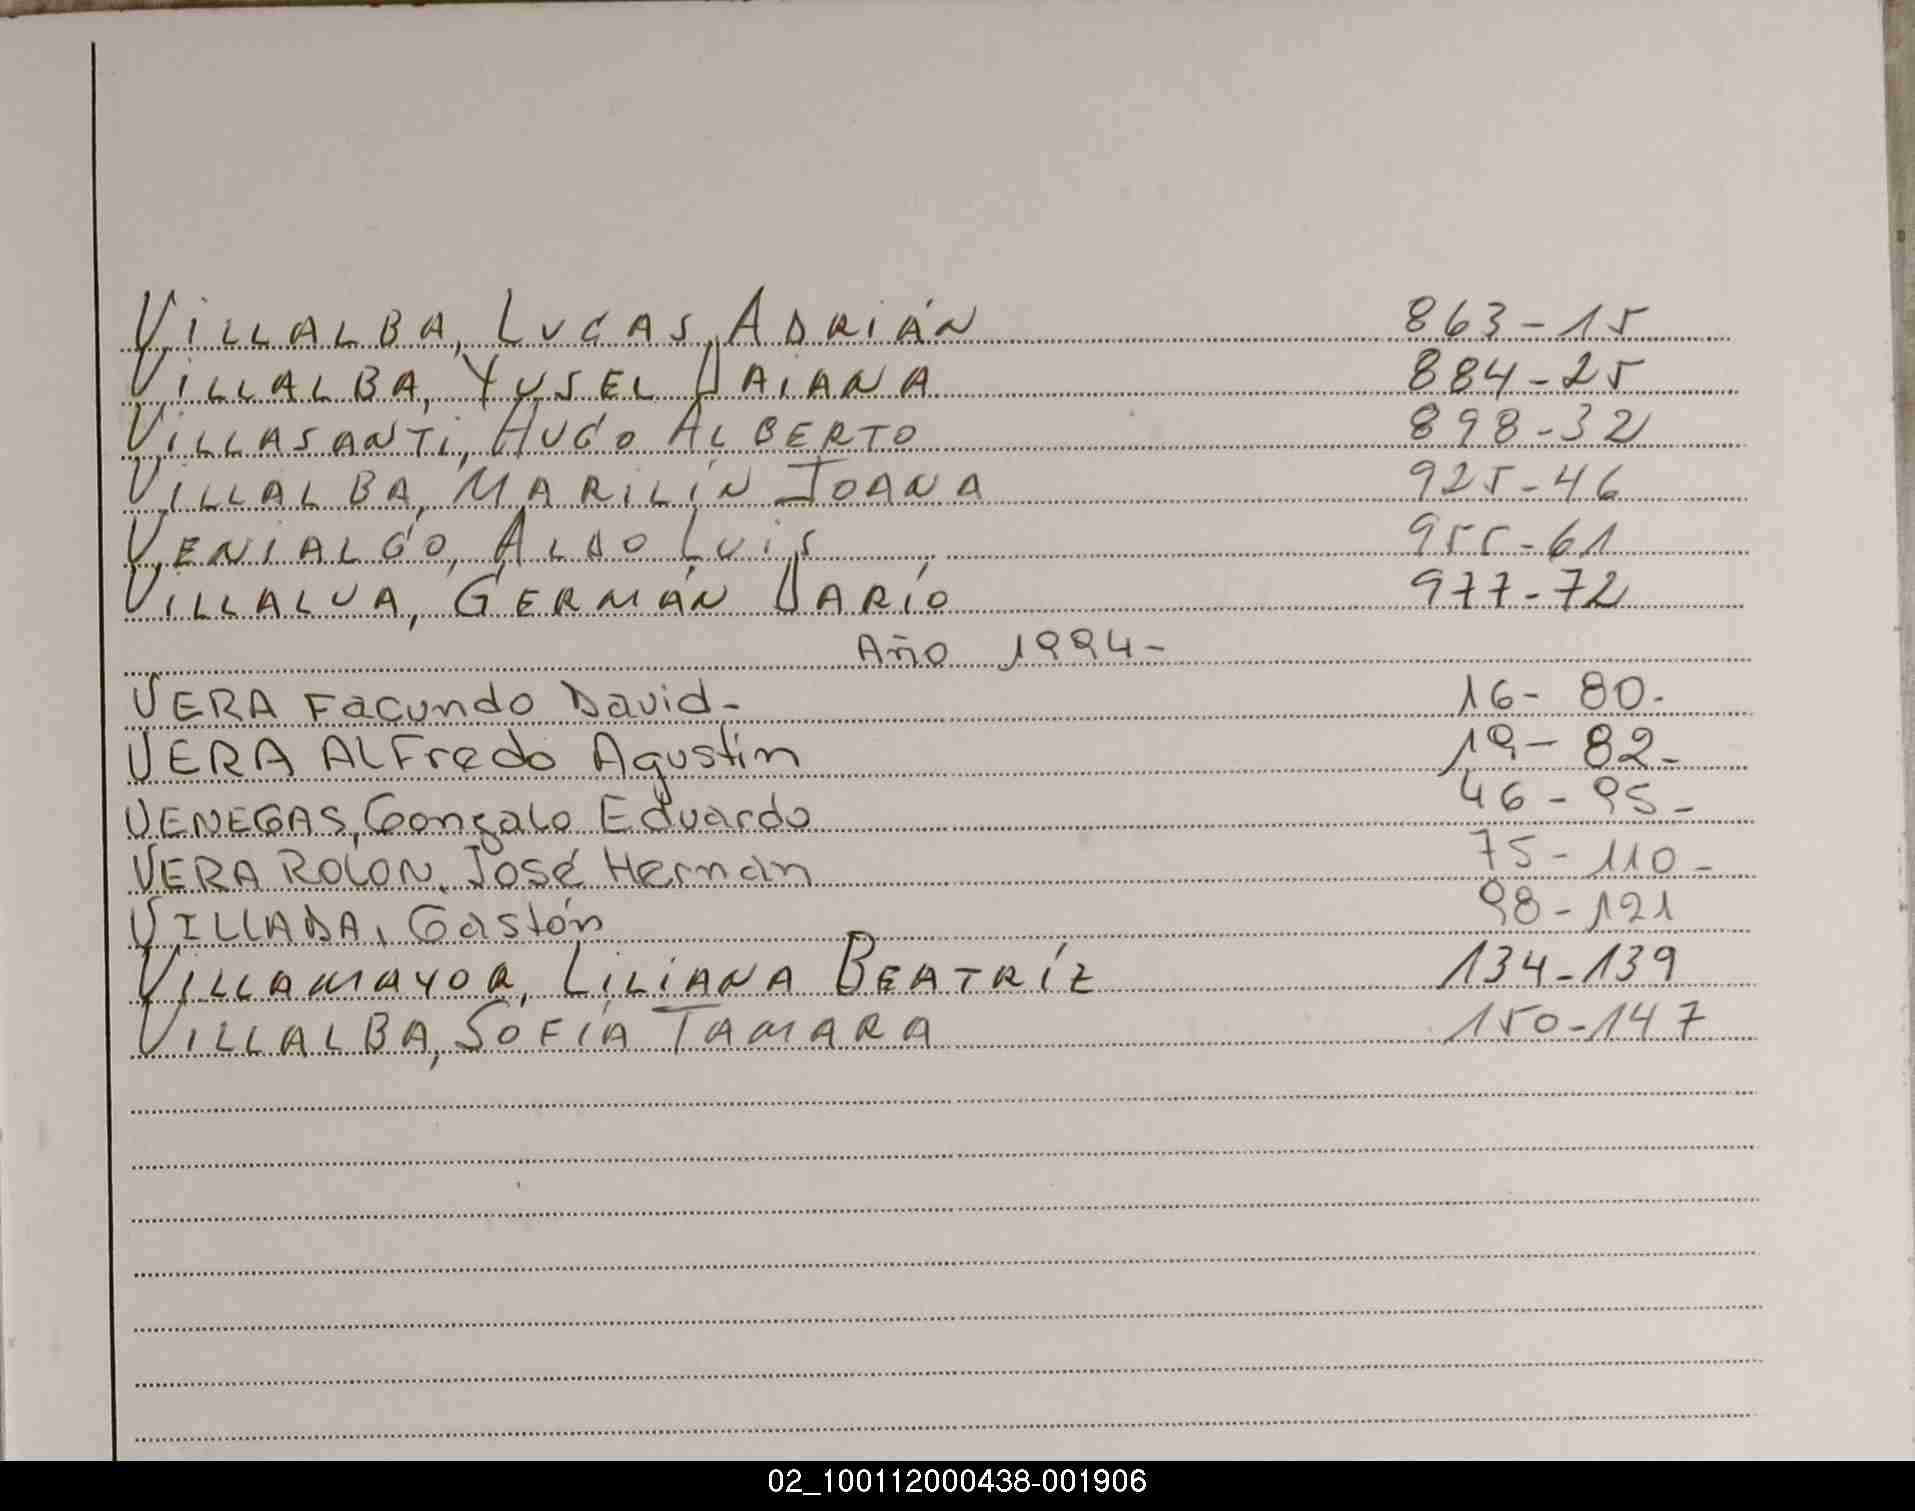 VILLALBA, LUCAS ADRIÁN 863-15
VILLALBA, YUSEL DAIANA 884-25
VILLASANTI, HUGO ALBERTO 898-32
VILLALBA, MARILÍN JOANA 925-46
VENIALGO, ALDO LUIS 955-61
VILLALVA, GERMÁN DARÍO 977-72
Año 1994-
VERA Facundo David- 16- 80-
VERA ALFredo Agustín 19- 82-
VENEGAS, Gonzalo Eduardo 46-95-
VERA ROLON, José Hernan 75-110-
VILLADA, Gastón 98-121
VILLAMAYOR, LILIANA BEATRÍZ 134-139
VILLALBA, SOFÍA TAMARA 150-147
02_100112000438-001906